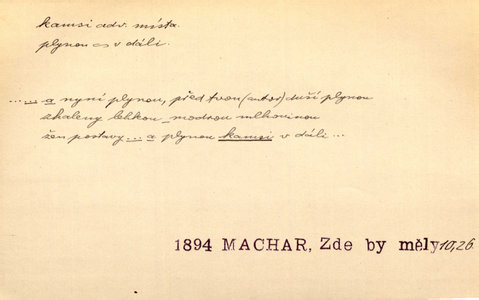 kamsi adv. místa.
plynou cs v dáli.
...... a nyní plynou, před tvou (mhou) duší plynou
zhaleny lehkou modrou mlhovinou
žen postavy ... a plynou kamsi v dáli ...
1894 MACHAR, Zde by měly 10,26.